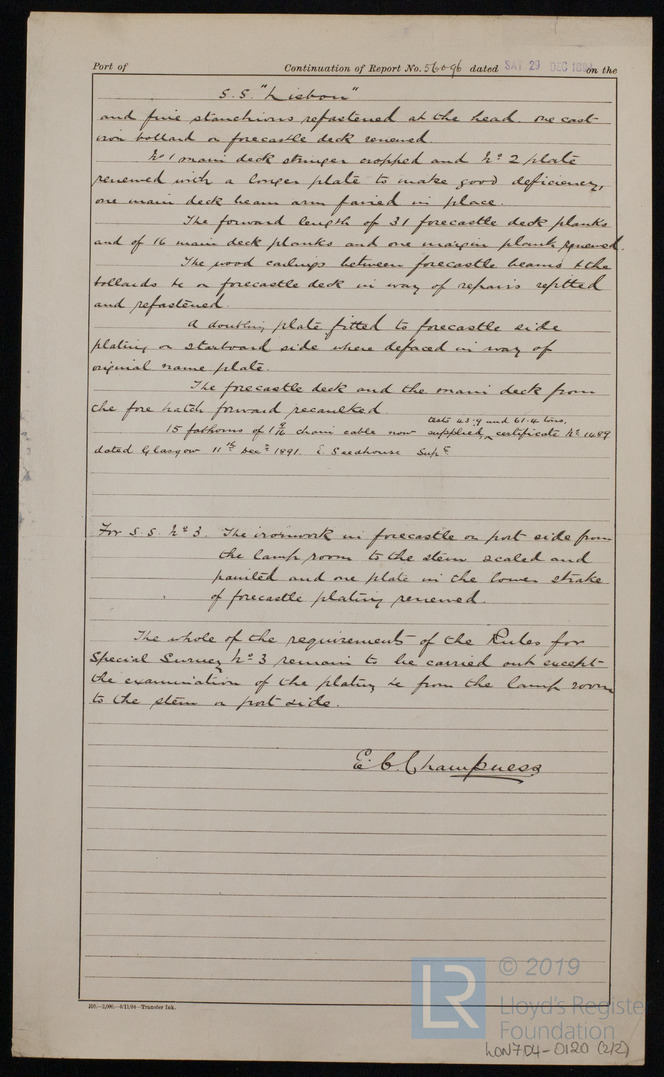 Port of Continuation of Report No. 56096 dated SAT 29 DEC on the
S.S. "Lisbon"
and five stanchions refastened at the head. one cast
iron bollard on forecastle deck renewed
No 1 main deck stringer cropped and No 2 plate
renewed with a longer plate to make good deficiency,
one main deck beam arm faired in place.
The forward length of 31 forecastle deck planks
and of 16 main deck planks and one margin plank renewed.
The wood ceilings between forecastle beams & the
bollards &c on forecastle deck in way of repairs refitted
and refastened.
A doubling plate fitted to forecastle side
plating on starboard side where defaced in way of
original name plate.
The forecastle deck and the main deck from
the fore hatch forward recaulked.
tests 43.9 and 61.4 tons,
15 fathoms of chain cable now supplied, certificate No 1489
dated Glasgow 11th Decr 1891. E Seedhouse Supt
For S.S. No 3. The ironwork in forecastle on port side from
the lamp room to the stem scaled and
painted and one plate in the lower strake
of forecastle plating renewed.
The whole of the requirements of the Rules for
Special Survey No 3 remain to be carried out except
the examination of the plating &c from the lamp room
to the stem on port side.
E. C. Champness
Transfer Ink.
LR © 2019
Lloyd's Register
Foundation
LON704-0120 (2/2)